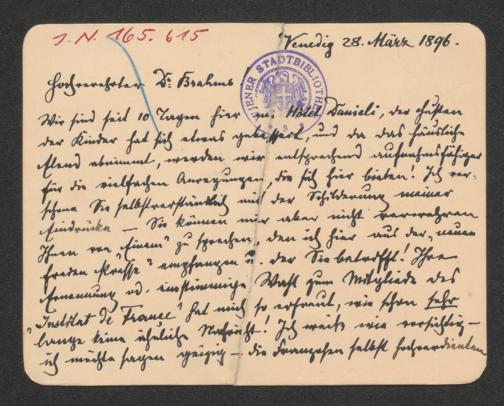 I. N. 165.615
Venedig 28. März 1896.
WIENER STADTBIBLIOTHEK
Hochverehrter Dr Brahms
Wir sind seit 10 Tagen hier im Hôtel Danieli, der Husten
der Kinder hat sich etwas gebessert, und da das häusliche
Elend abnimmt, werden wir entsprechend aufnahmsfähiger
für die vielfachen Anregungen, die sich hier bieten! Ich ver-
schone Sie selbstverständlich mit der Schilderung meiner
Eindrücke – Sie können mir aber nicht verwehren
Ihnen von "Einem" zu sprechen, den ich hier aus der "neuen
freien Presse" empfangen u. der Sie betrifft! Ihre
Ernennung od. einstimmige Wahl zum Mitgliede des
"Institut de France" hat mich so erfreut, wie schon sehr
lange keine ähnliche Nachricht! Ich weiß wie vorsichtig –
ich möchte sagen geizig – die Franzosen selbst hochverdienten